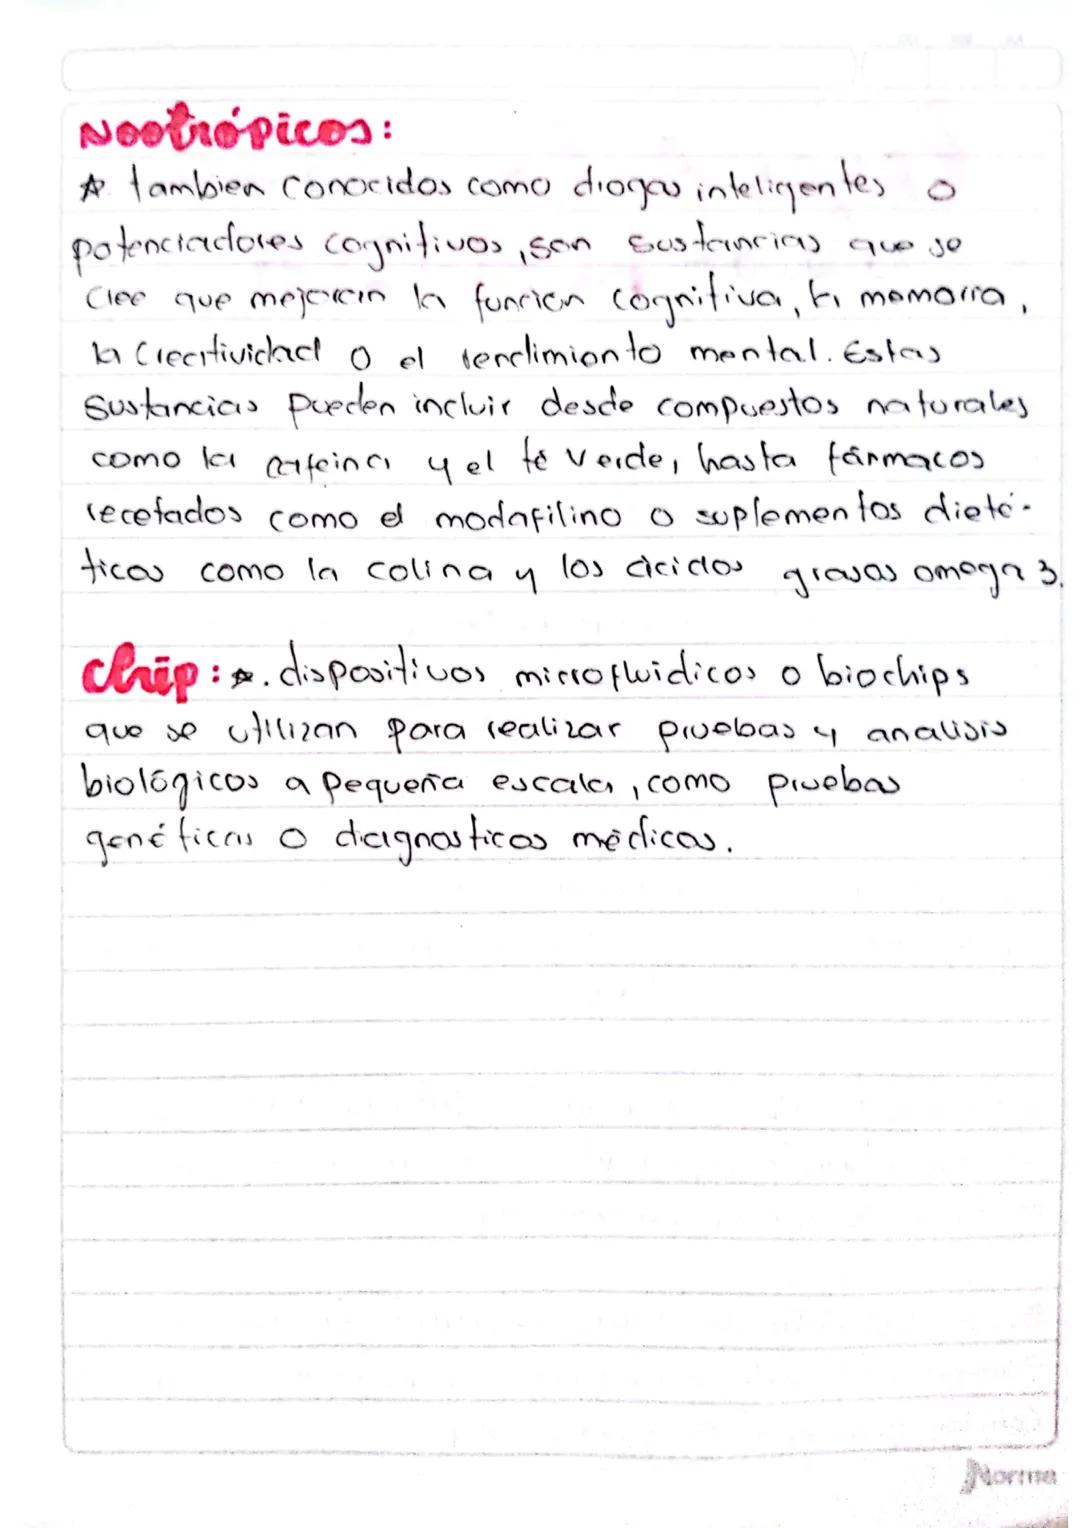 Nootrópicos:
☆ tambien conocidos como drogas inteligentes o
potenciadores cognitivos, son sustancias que se
cree que mejoran la funcion cognitiva, la memoria,
la creatividad o el rendimiento mental. Estas
sustancias pueden incluir desde compuestos naturales
como la cafeina y el té verde, hasta fármacos
recetados como el modafilino o suplementos dieté-
ticos como la colina y los ácidos grasos omega 3.
chip: ☆. dispositivos microfluidicos o biochips
que se utilizan para realizar pruebas y analisis
biológicos a pequeña escala, como pruebas
genéticas o diagnosticos médicos.
Norma